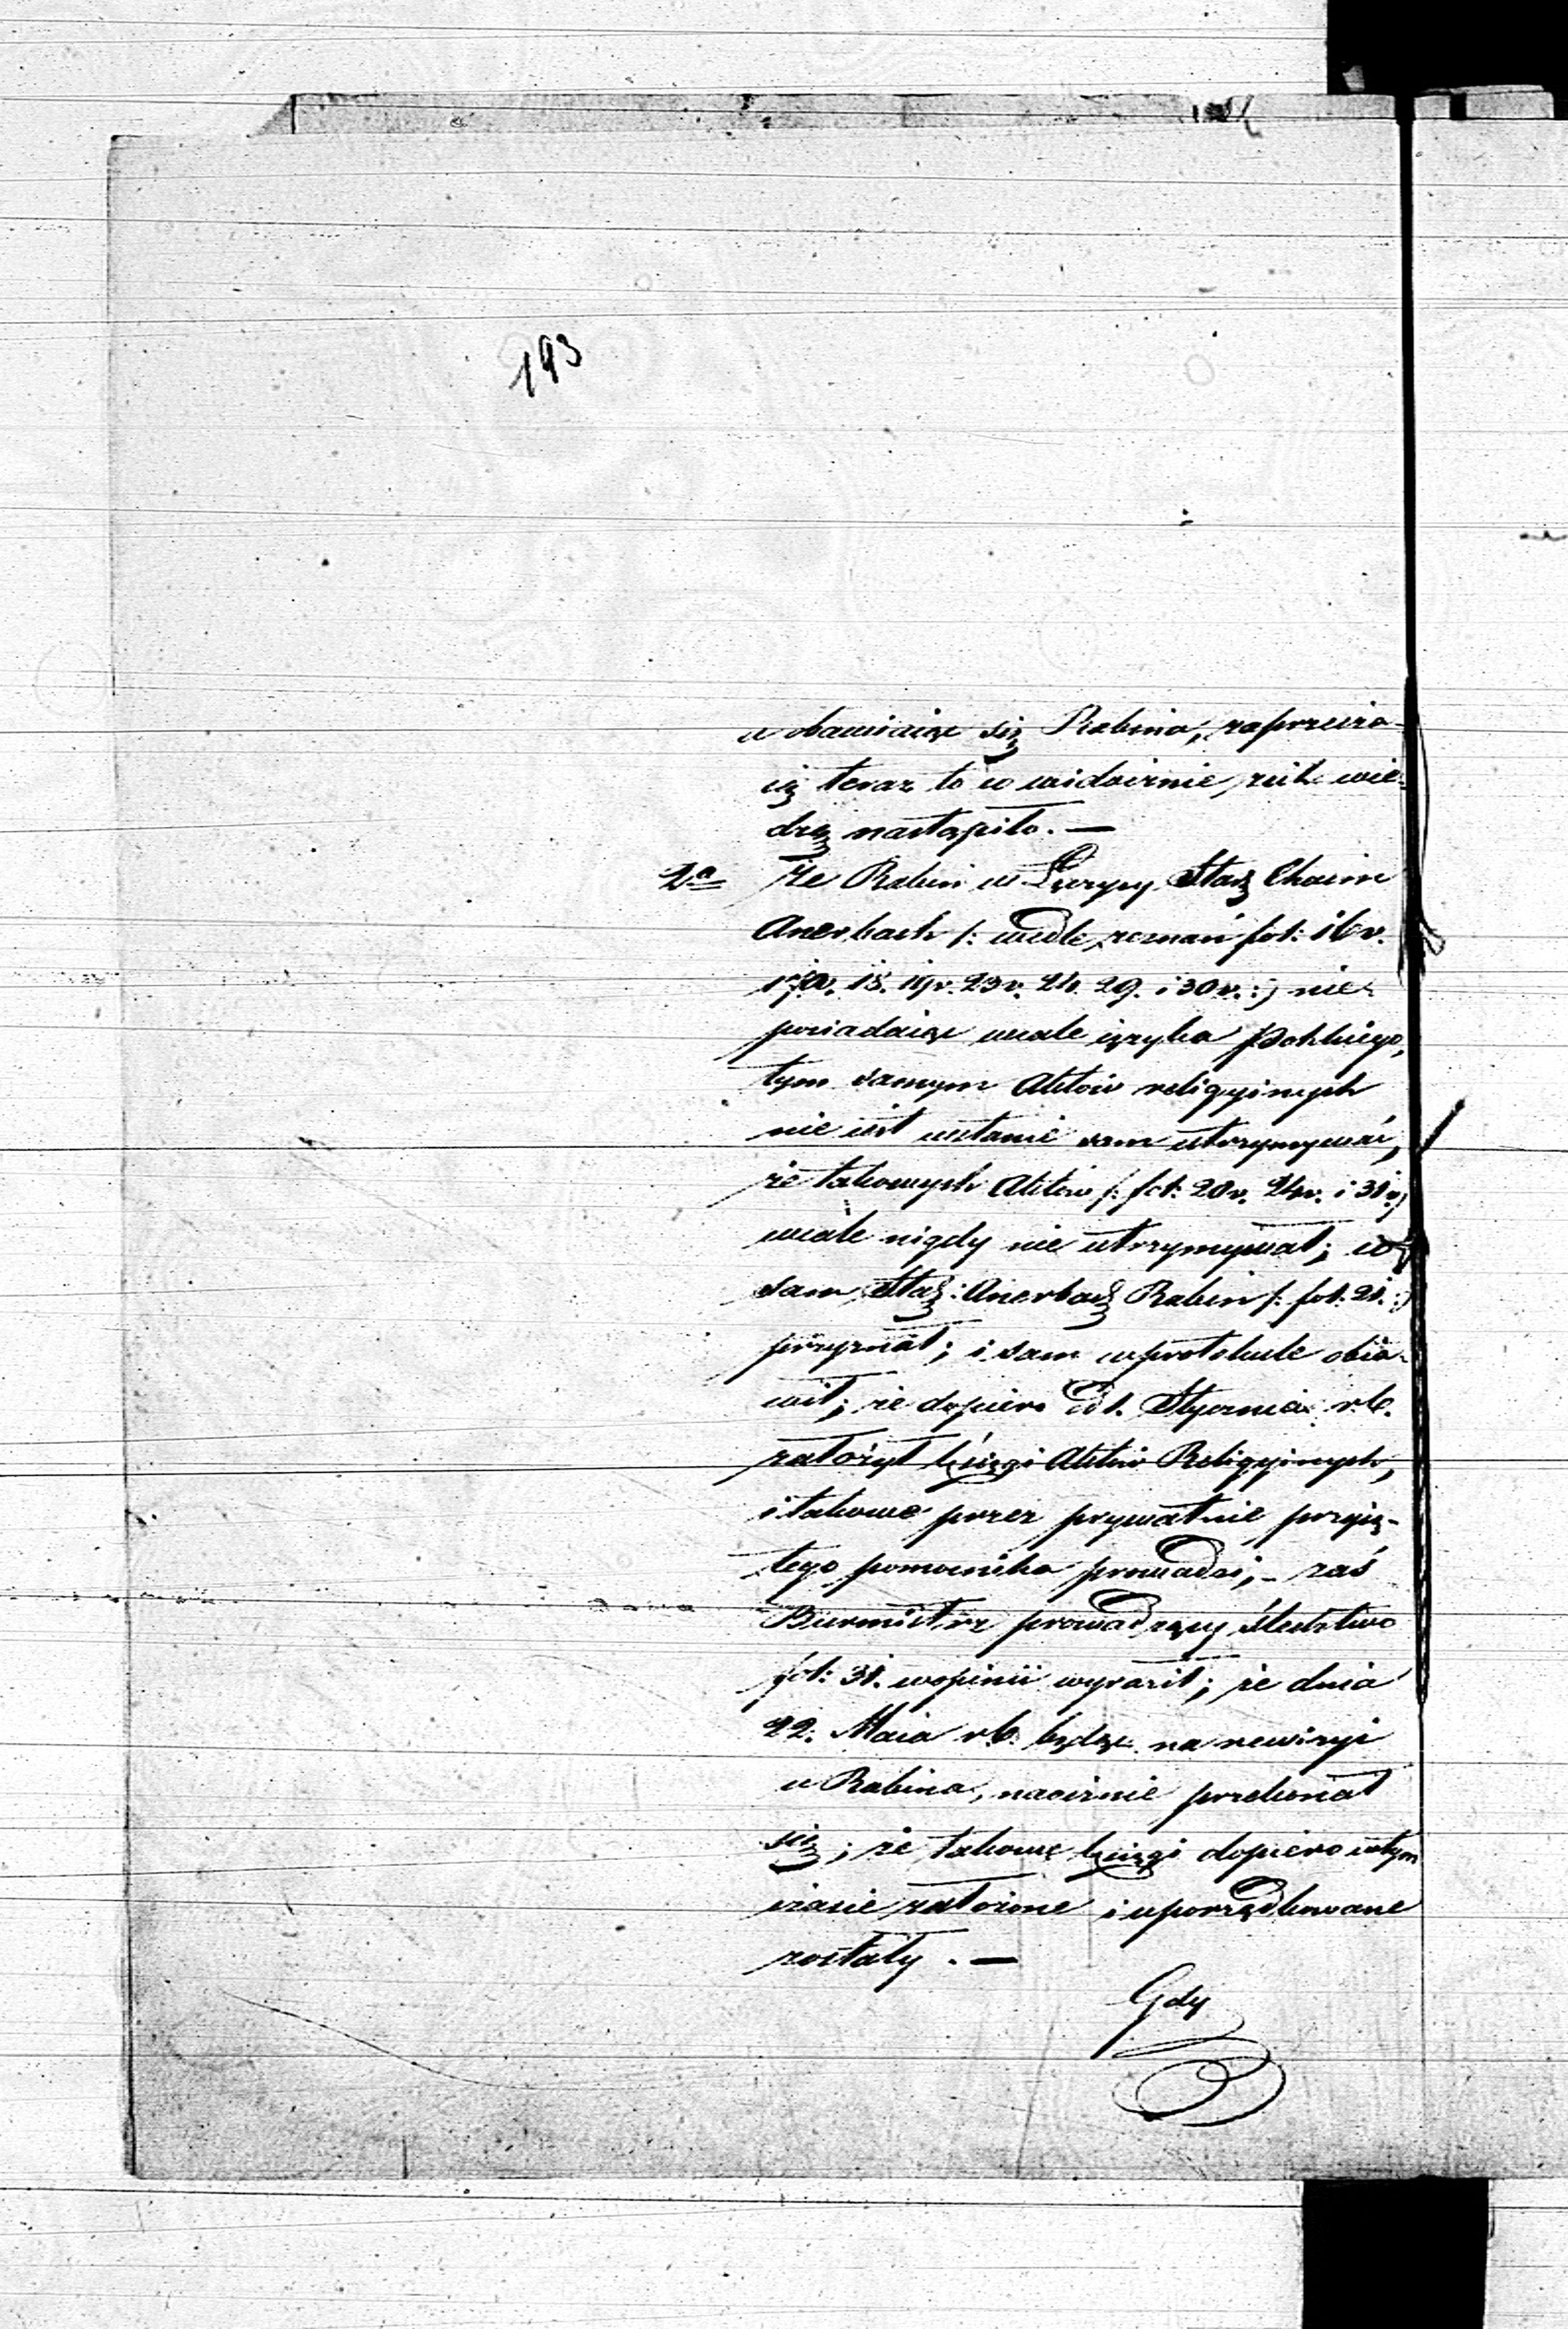 193
a obawiaiąc się Rabina, zaprzecza-
ią teraz to co widocznie, z ich wie-
dzą nastąpiło. —
2a że Rabin w Łęczycy Sta: Chaim
Auerbach /: wedle zeznań fol: 16v.
17. 18. 19v. 23v. 24. 29. i 30v. :/ nie
posiadaiąc wcale ięzyka Polskiego,
tym samym Aktów religyinych
nie iest wstanie sam utrzymywać,
że takowych Aktów /: fol: 20v. 24v. i 31v:/
wcale nigdy nie utrzymywał; co
sam Sta: Auerbach Rabin /: fol: 21. :/
przyznał; i sam w protokule obia-
wił; że dopiero od 1. Stycznia r.b.
założył księgi Aktów Religyinych,
i takowe przez prywatnie przyię-
tego pomocnika prowadzi; – zaś
Burmistrz prowadzący śledztwo
fol: 31. w opinii wyraził; że dnia
22. Maia r.b. będąc na rewizyi
u Rabina, naocznie przekonał
się; że takowe księgi dopiero w tym
czasie założone i uporządkowane
zostały. —
Gdy